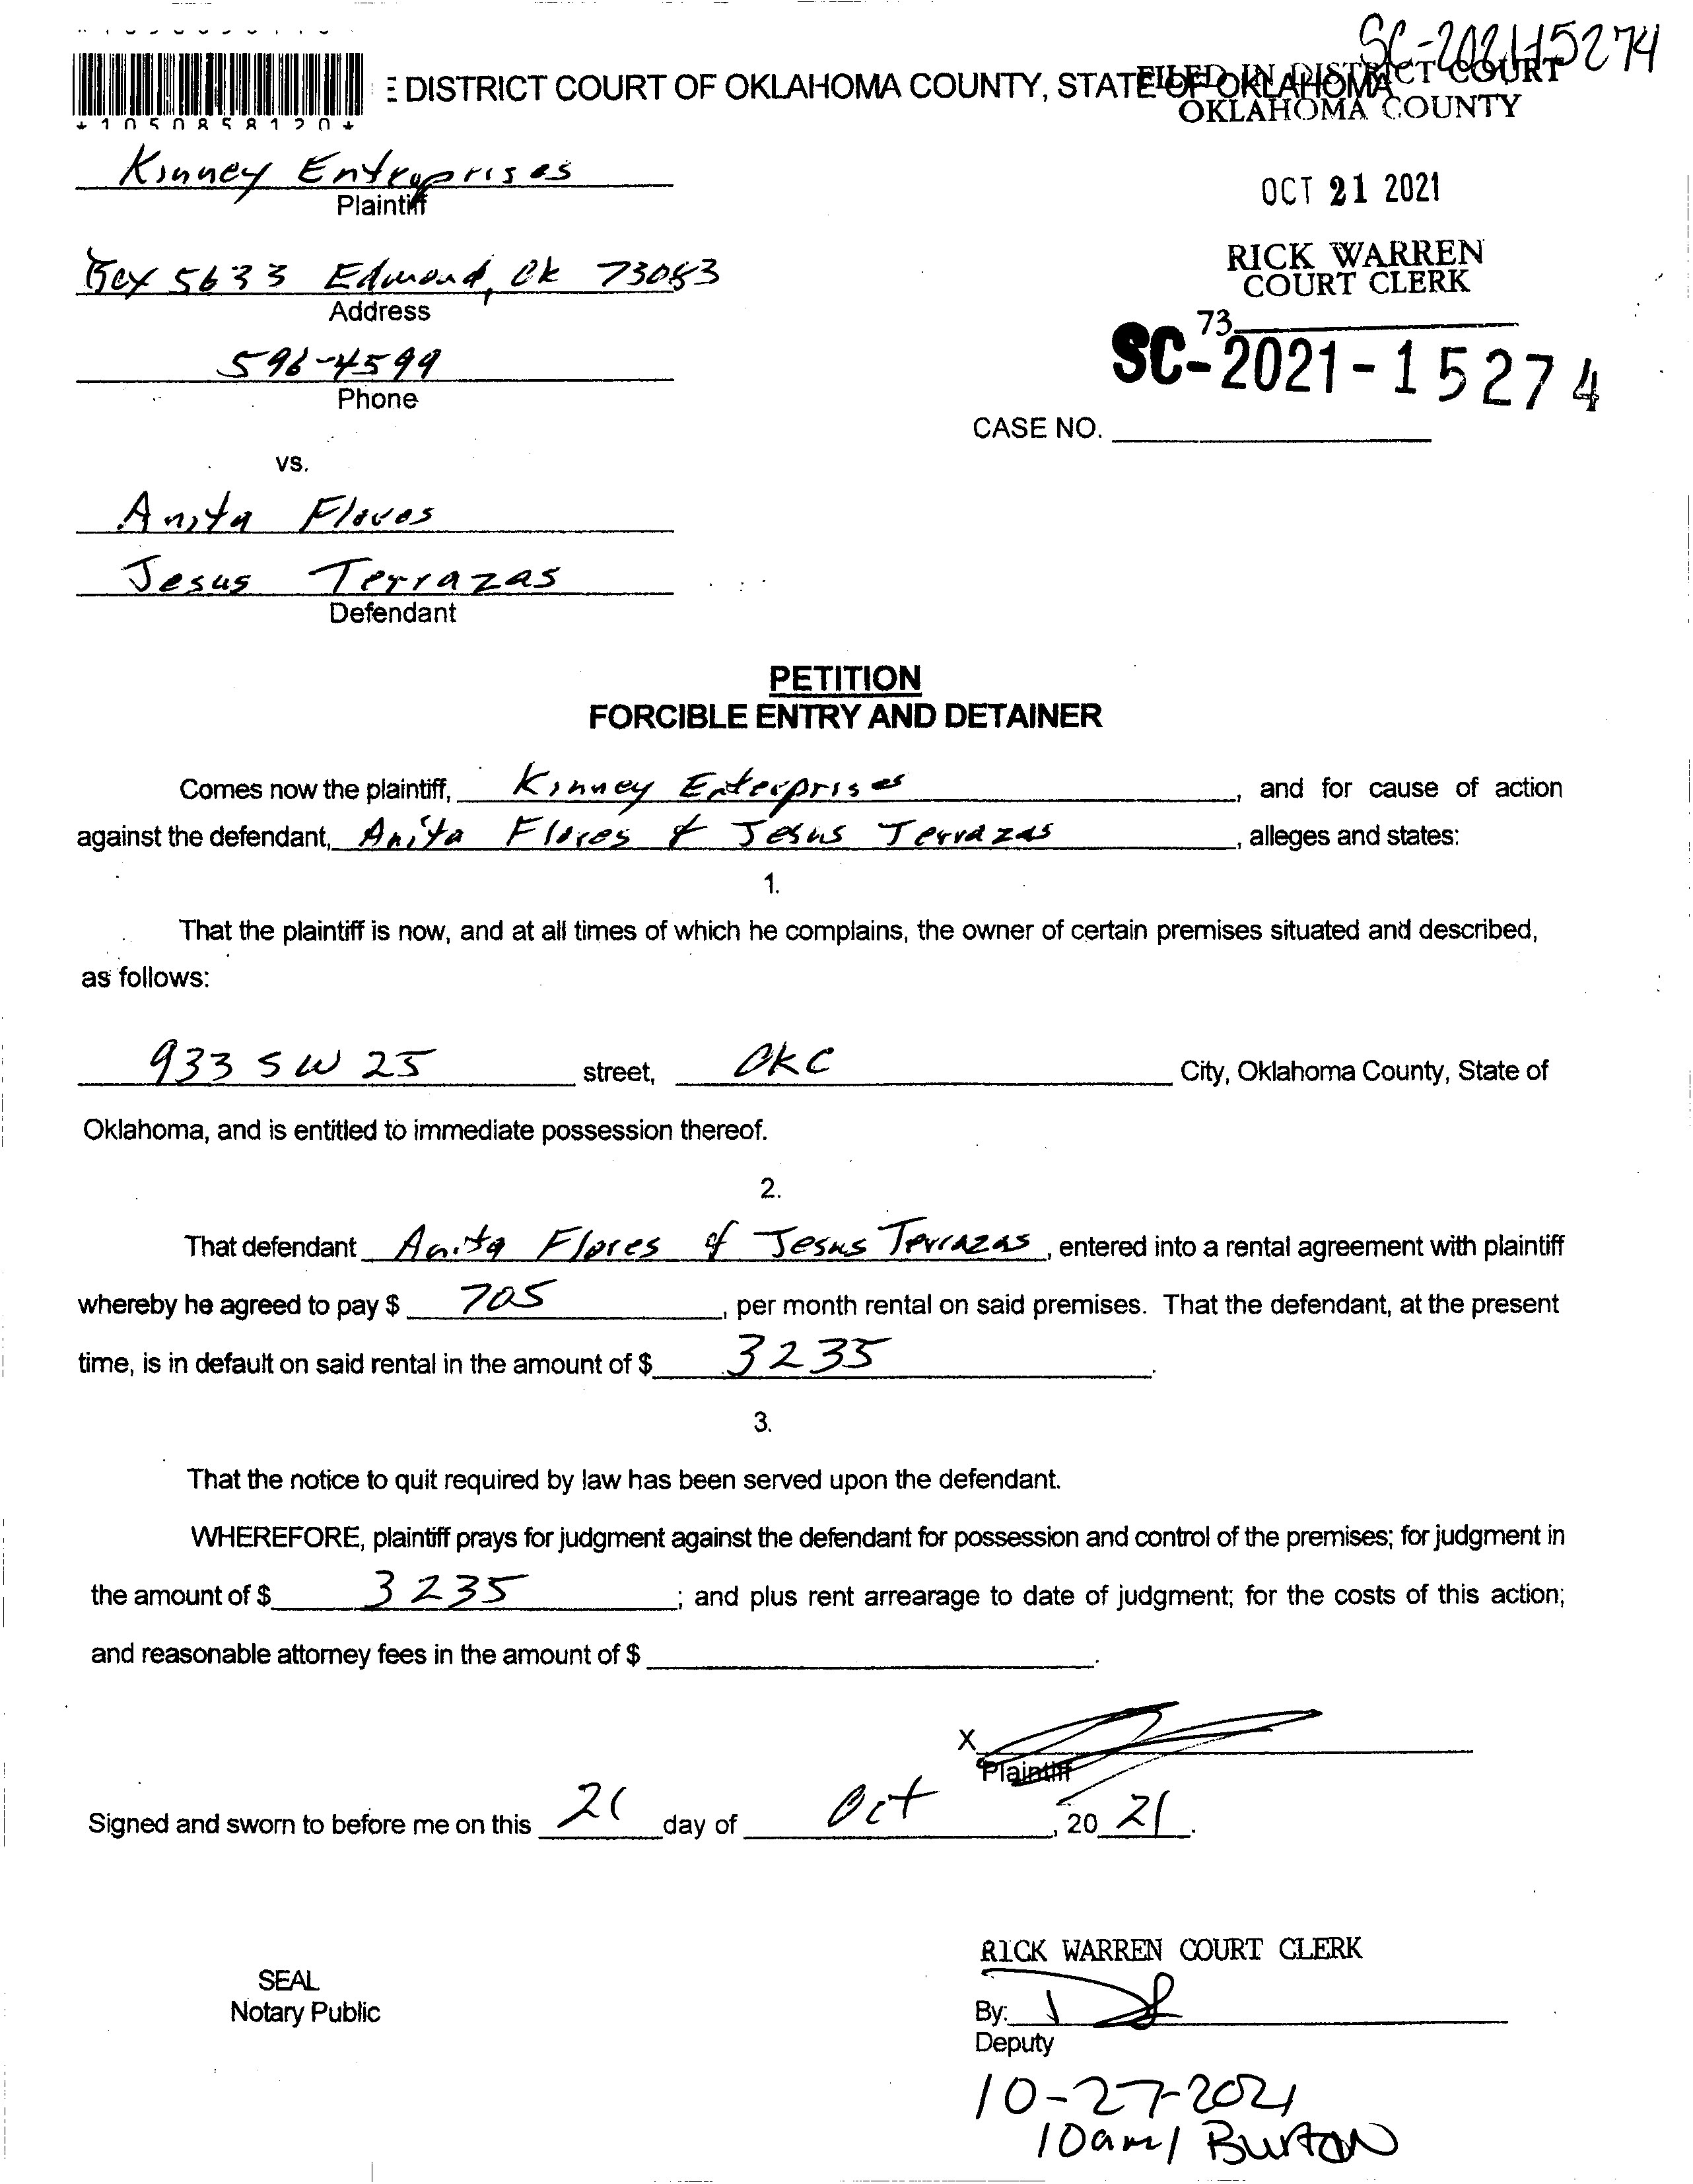 SC-2021-15274
E DISTRICT COURT OF OKLAHOMA COUNTY, STATE OF OKLAHOMA
FILED IN DISTRICT COURT
OKLAHOMA COUNTY
*1050858120*
Kinney Enterprises
Plaintiff
OCT 21 2021
RICK WARREN
COURT CLERK
Box 5633 Edmond, Ok 73083
Address
73
SC-2021-15274
596-4599
Phone
CASE NO.
vs.
Anita Flores
Jesus Terrazas
Defendant
PETITION
FORCIBLE ENTRY AND DETAINER
Comes now the plaintiff, Kinney Enterprises, and for cause of action
against the defendant, Anita Flores & Jesus Terrazas, alleges and states:
1.
That the plaintiff is now, and at all times of which he complains, the owner of certain premises situated and described,
as follows:
933 SW 25 street, OKC City, Oklahoma County, State of
Oklahoma, and is entitled to immediate possession thereof.
2.
That defendant Anita Flores & Jesus Terrazas, entered into a rental agreement with plaintiff
whereby he agreed to pay $ 705, per month rental on said premises. That the defendant, at the present
time, is in default on said rental in the amount of $ 3235.
3.
That the notice to quit required by law has been served upon the defendant.
WHEREFORE, plaintiff prays for judgment against the defendant for possession and control of the premises; for judgment in
the amount of $ 3235; and plus rent arrearage to date of judgment; for the costs of this action;
and reasonable attorney fees in the amount of $ .
X
Plaintiff
Signed and sworn to before me on this 21 day of Oct, 20 21.
RICK WARREN COURT CLERK
SEAL
Notary Public
By:
Deputy
10-27-2021
10am/ Burton